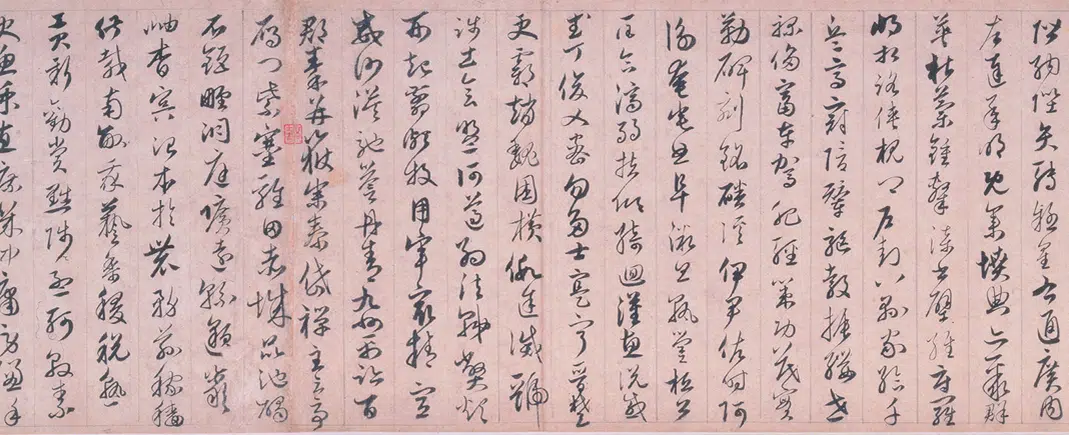 階納陛弁轉疑星右通廣內
左達承明既集墳典亦聚群
英杜藁鍾隸漆書壁經府羅
將相路俠槐卿戶封八縣家給千
兵高冠陪輦驅轂振纓世
祿侈富車駕肥輕策功茂實
勒碑刻銘磻溪伊尹佐時阿
衡奄宅曲阜微旦孰營桓公
匡合濟弱扶傾綺迴漢惠說感
武丁俊乂密勿多士寔寧晉楚
更霸趙魏困橫假途滅虢
踐土會盟何遵約法韓弊煩
刑起翦頗牧用軍最精宣
威沙漠馳譽丹青九州禹跡百
郡秦并嶽宗泰岱禪主云亭
雁門紫塞雞田赤城昆池碣
石鉅野洞庭曠遠綿邈巖
岫杳冥治本於農務茲稼穡
俶載南畝我藝黍稷稅熟
貢新勸賞黜陟孟軻敦素
史魚秉直庶幾中庸勞謙謹